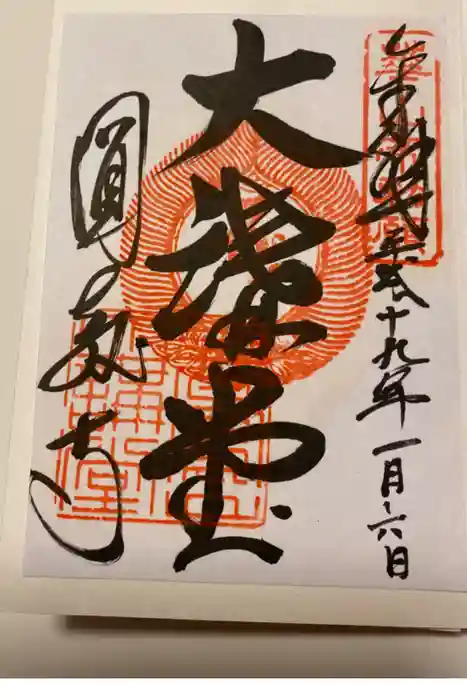 奉拝 平成十九年一月六日
大講堂
圓教寺